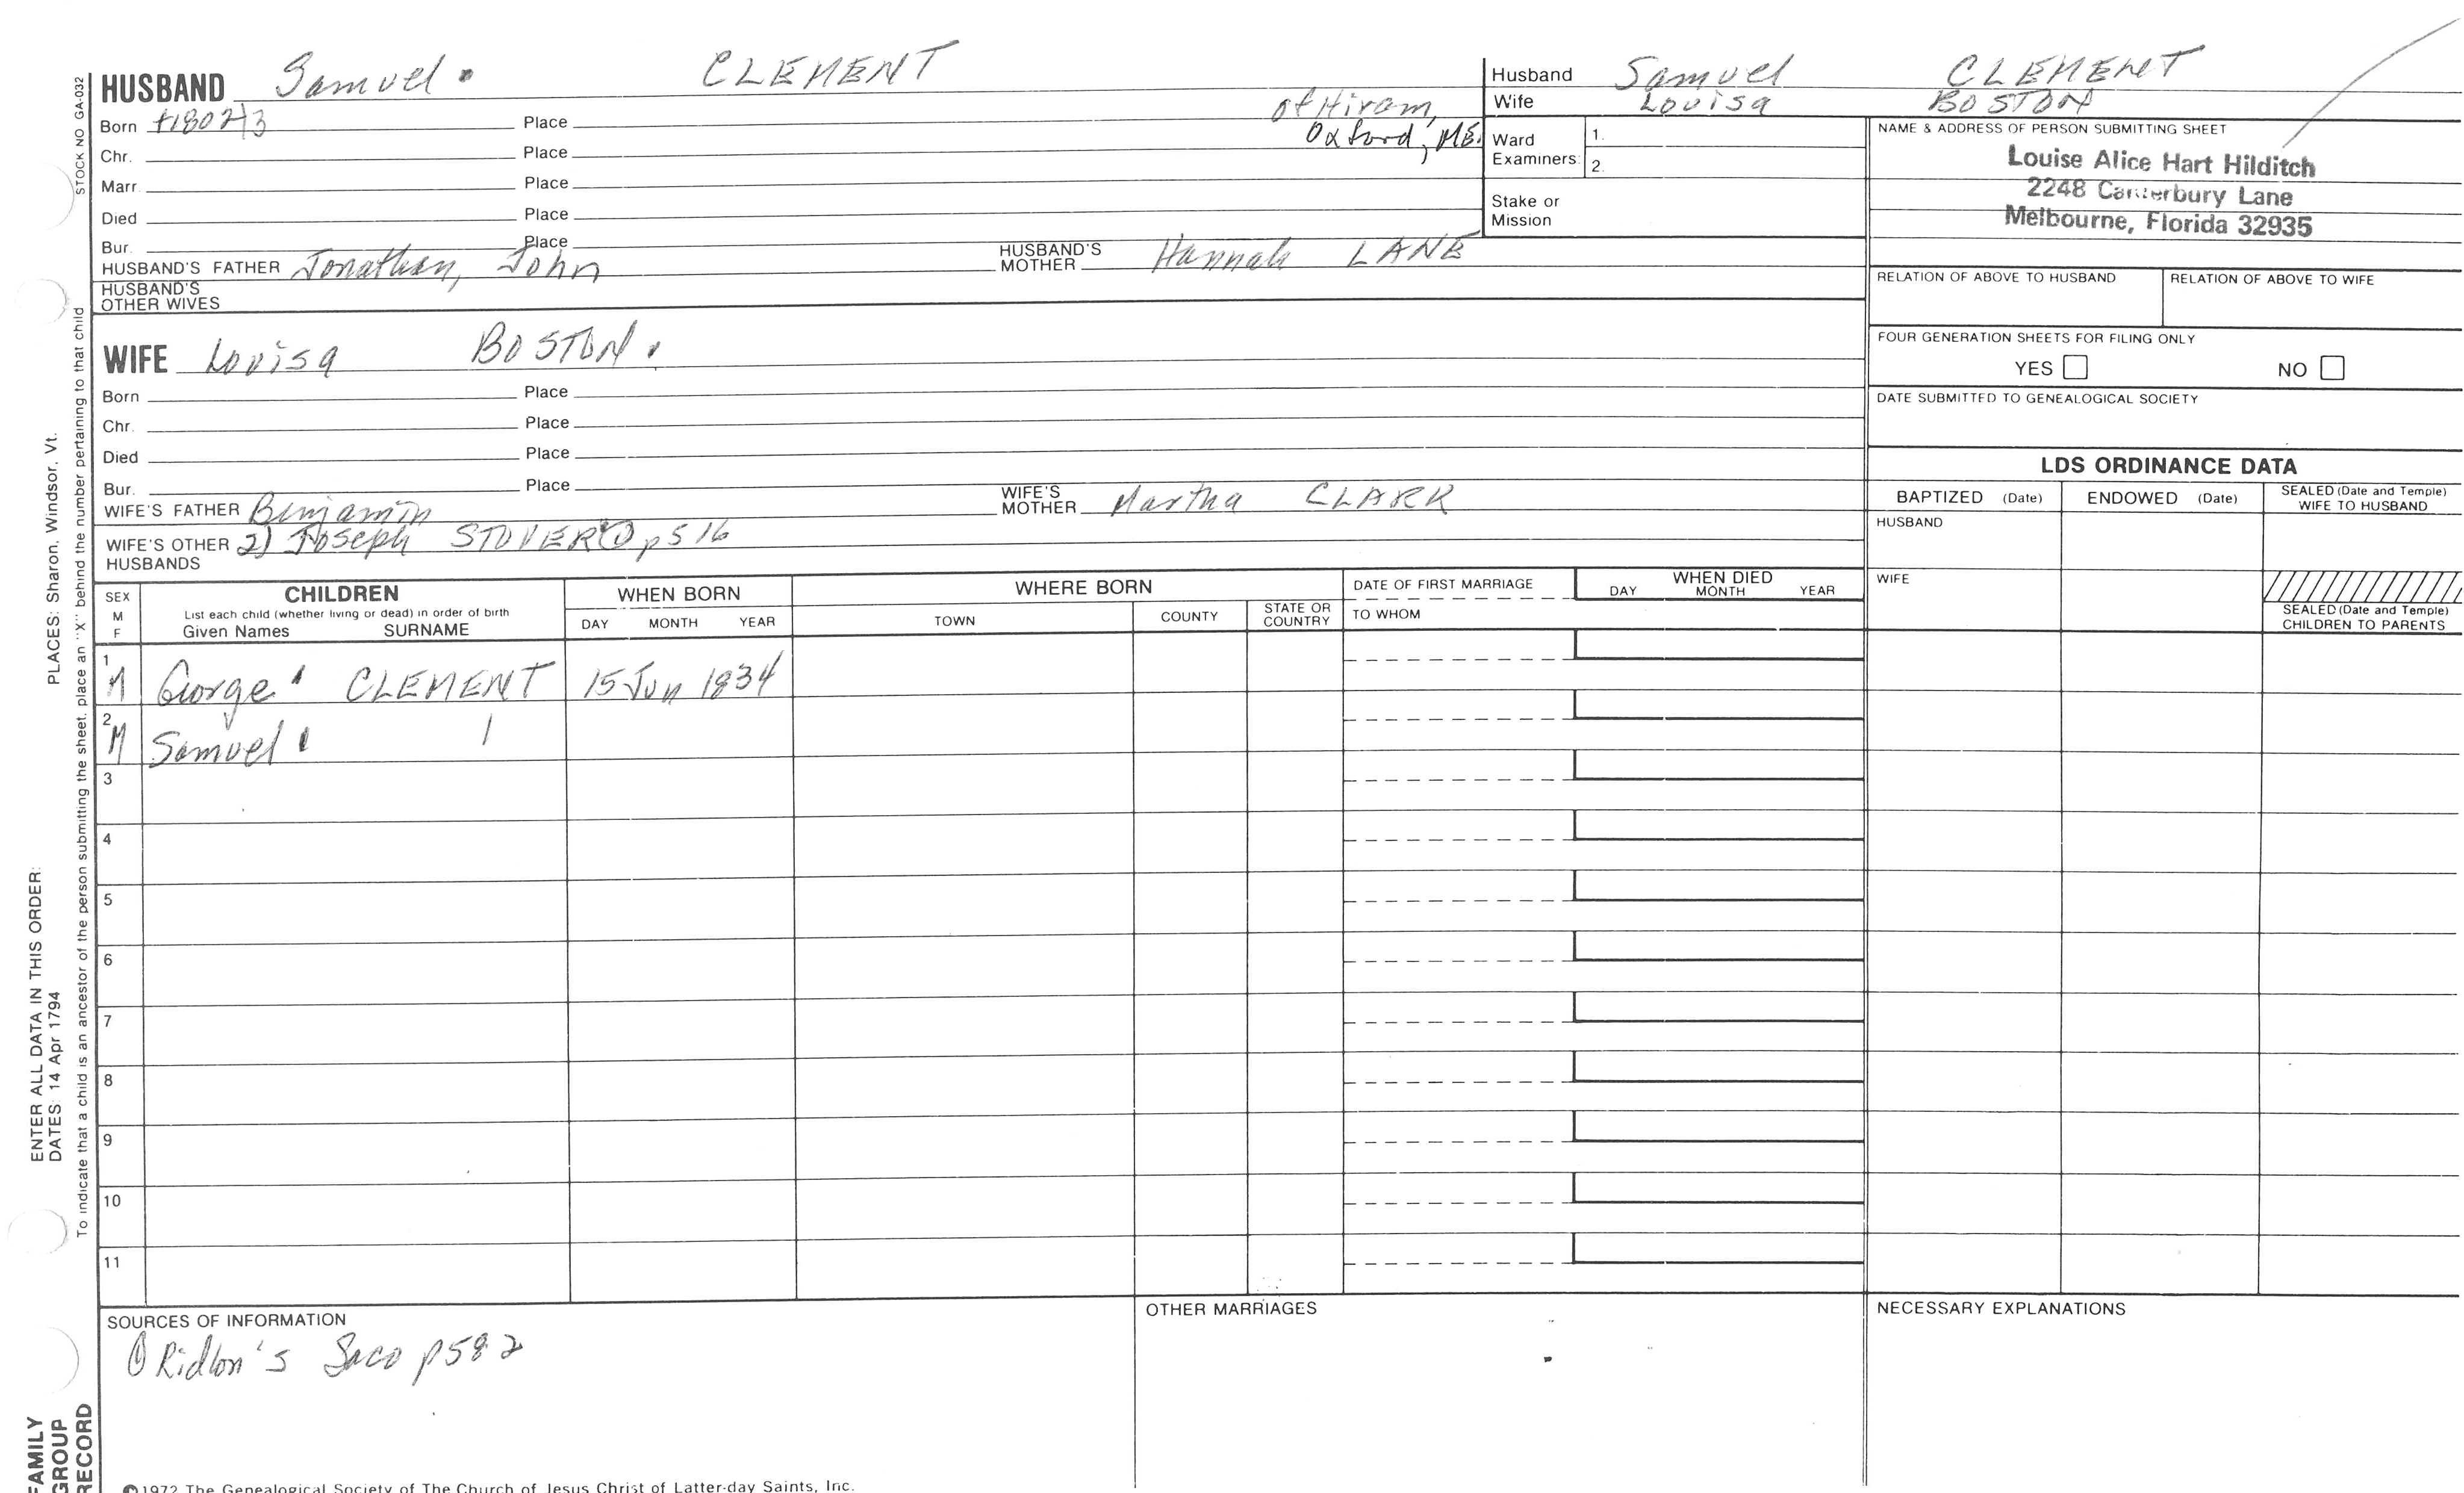 HUSBAND Samuel CLEMENT
Born ±1802/3 Place of Hiram, Oxford, ME.
Chr. Place
Marr. Place
Died Place
Bur. Place
HUSBAND'S FATHER Jonathan, John HUSBAND'S MOTHER Hannah LANE
HUSBAND'S OTHER WIVES
WIFE Louisa BOSTON.
Born Place
Chr. Place
Died Place
Bur. Place
WIFE'S FATHER Benjamin WIFE'S MOTHER Martha CLARK
WIFE'S OTHER HUSBANDS 2) Joseph STOVER p 516
Husband Samuel CLEMENT
Wife Louisa BOSTON
Ward Examiners: 1. 2.
Stake or Mission
NAME & ADDRESS OF PERSON SUBMITTING SHEET
Louise Alice Hart Hilditch
2248 Canterbury Lane
Melbourne, Florida 32935
RELATION OF ABOVE TO HUSBAND RELATION OF ABOVE TO WIFE
FOUR GENERATION SHEETS FOR FILING ONLY
YES NO
DATE SUBMITTED TO GENEALOGICAL SOCIETY
LDS ORDINANCE DATA
BAPTIZED (Date) ENDOWED (Date) SEALED (Date and Temple) WIFE TO HUSBAND
HUSBAND
WIFE
SEALED (Date and Temple) CHILDREN TO PARENTS
SEX M F
CHILDREN
List each child (whether living or dead) in order of birth
Given Names SURNAME
WHEN BORN
DAY MONTH YEAR
WHERE BORN
TOWN COUNTY STATE OR COUNTRY
DATE OF FIRST MARRIAGE
TO WHOM
WHEN DIED
DAY MONTH YEAR
1 M George CLEMENT 15 Jun 1834
2 M Samuel
3
4
5
6
7
8
9
10
11
SOURCES OF INFORMATION
Ridlon's Saco p582
OTHER MARRIAGES
NECESSARY EXPLANATIONS
©1972 The Genealogical Society of The Church of Jesus Christ of Latter-day Saints, Inc.
STOCK NO GA-032
To indicate that a child is an ancestor of the person submitting the sheet, place an "X" behind the number pertaining to that child
PLACES: Sharon, Windsor, Vt.
ENTER ALL DATA IN THIS ORDER:
DATES: 14 Apr 1794
FAMILY
GROUP
RECORD